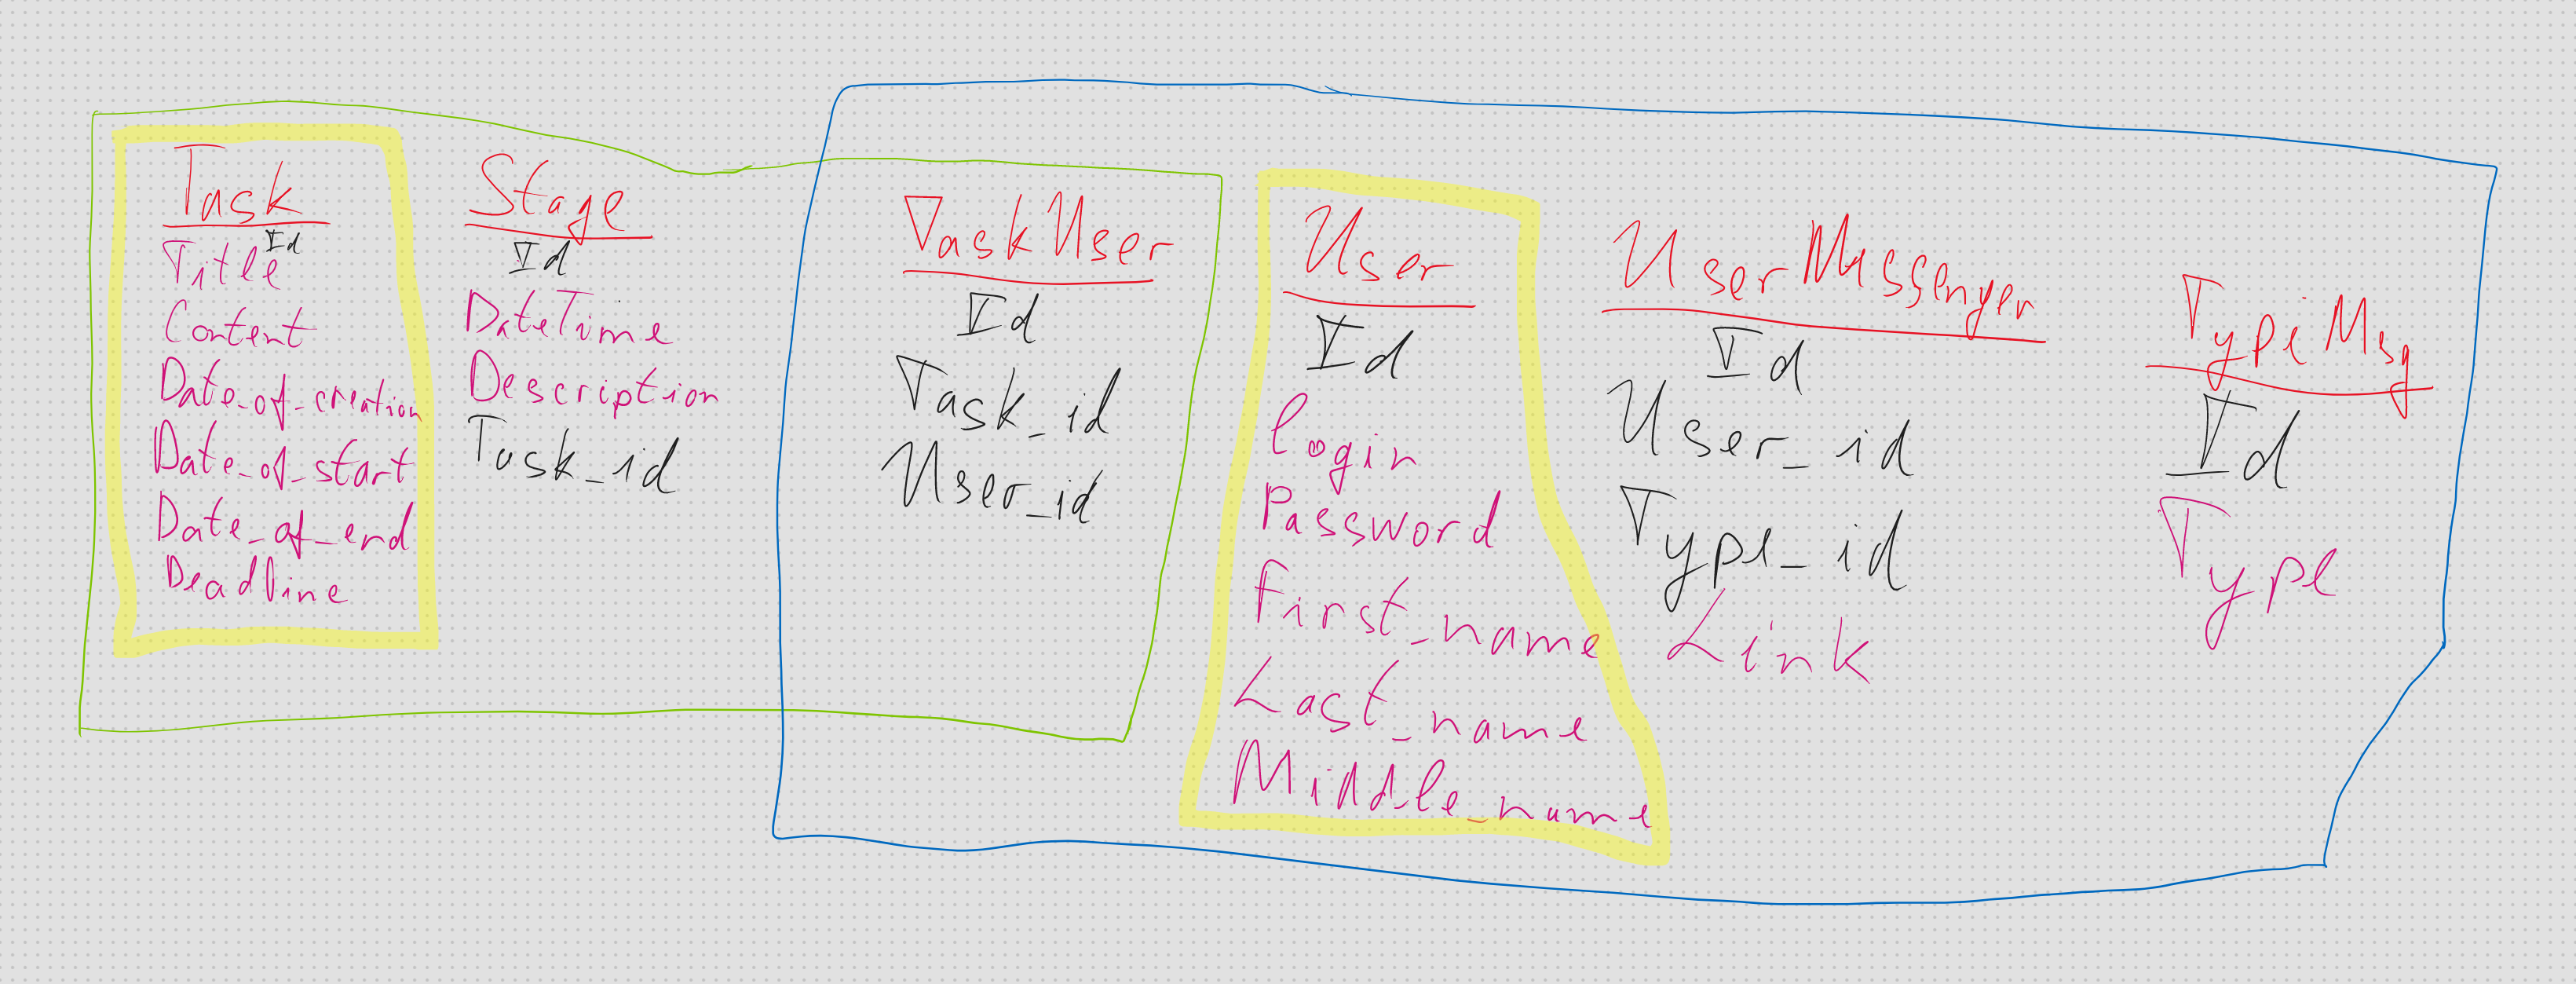 Task
Id
Title
Content
Date_of_creation
Date_of_start
Date_of_end
Deadline
Stage
Id
DateTime
Description
Task_id
TaskUser
Id
Task_id
User_id
User
Id
Login
Password
First_name
Last_name
Middle_name
UserMessenger
Id
User_id
Type_id
Link
TypeMsg
Id
Type